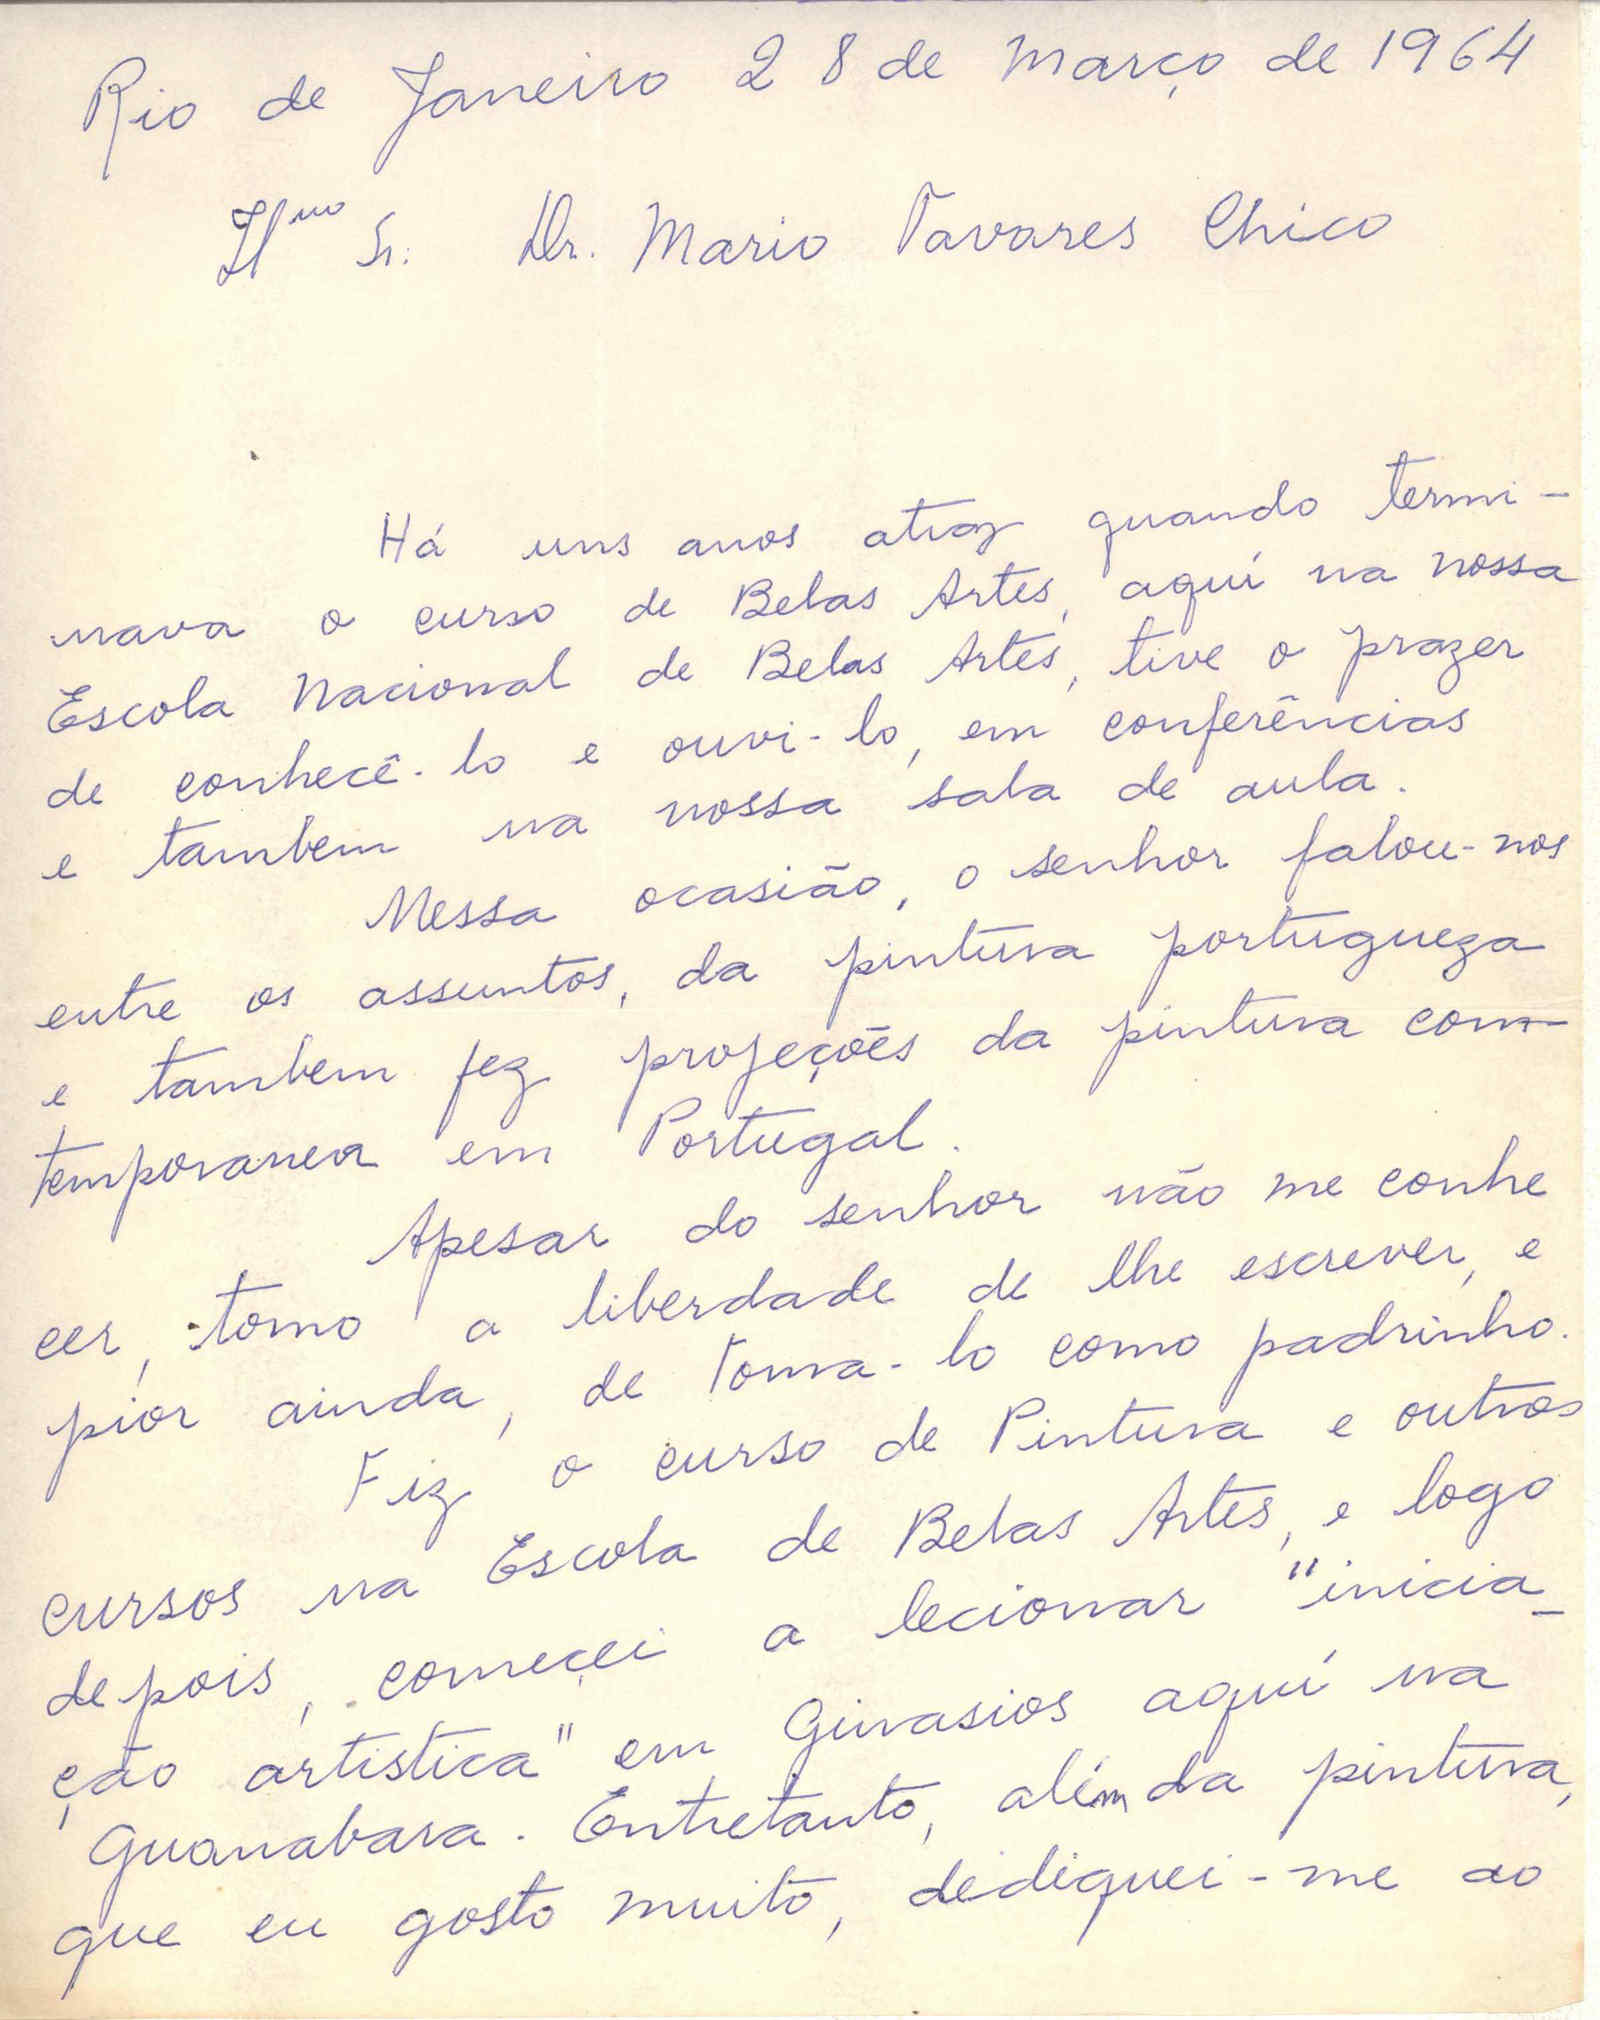 Rio de Janeiro 28 de Março de 1964
Ilmo Sr. Dr. Mario Tavares Chico
Há uns anos atraz quando termi-
nava o curso de Belas Artes, aquí na nossa
Escola Nacional de Belas Artes, tive o prazer
de conhecê-lo e ouvi-lo, em conferências
e tambem na nossa sala de aula.
Nessa ocasião, o senhor falou-nos
entre os assuntos, da pintura portugueza
e tambem fez projeções da pintura con-
temporanea em Portugal.
Apesar do senhor não me conhe
cer, tomo a liberdade de lhe escrever, e
pior ainda, de toma-lo como padrinho.
Fiz o curso de Pintura e outros
cursos na Escola de Belas Artes, e logo
depois, começei a lecionar "inicia-
ção artistica" em Ginasios aquí na
Guanabara. Entretanto, além da pintura,
que eu gosto muito, dediquei-me ao